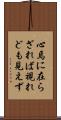 心焉に在ら
ざれば視れ
ども見えず